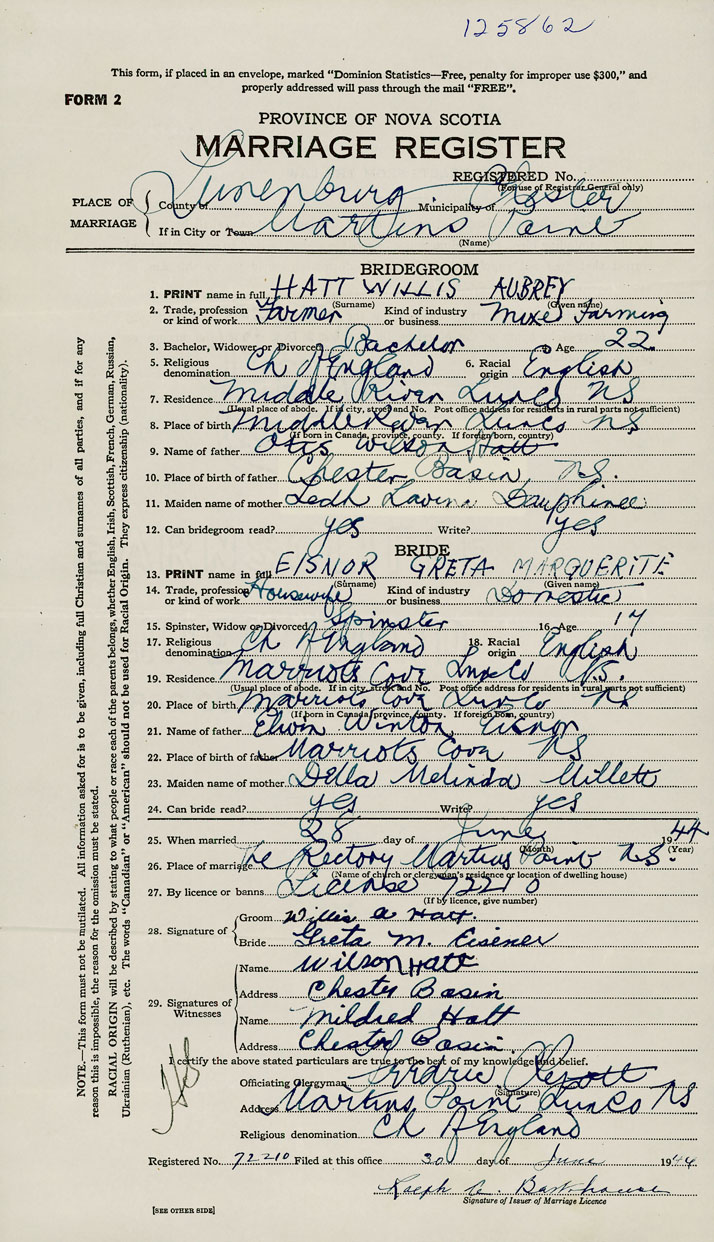 125862
This form, if placed in an envelope, marked "Dominion Statistics—Free, penalty for improper use $300," and
properly addressed will pass through the mail "FREE".
FORM 2
PROVINCE OF NOVA SCOTIA
MARRIAGE REGISTER
REGISTERED No.
(For use of Registrar General only)
PLACE OF MARRIAGE
County of Lunenburg Municipality of Chester
If in City or Town Martins Point
(Name)
BRIDEGROOM
1. PRINT name in full HATT WILLIS AUBREY
(Surname) (Given name)
2. Trade, profession or kind of work Farmer Kind of industry or business Mixe Farming
3. Bachelor, Widower or Divorced Bachelor Age 22
5. Religious denomination Ch of England 6. Racial origin English
7. Residence Middle River Lun Co NS
(Usual place of abode. If in city, street and No. Post office address for residents in rural parts not sufficient)
8. Place of birth Middle River Lun Co NS
(If born in Canada, province, county. If foreign born, country)
9. Name of father Otis Wilson Hatt
10. Place of birth of father Chester Basin NS.
11. Maiden name of mother Ledh Lavina Dauphinee
12. Can bridegroom read? yes Write? yes
BRIDE
13. PRINT name in full EISNOR GRETA MARGUERITE
(Surname) (Given name)
14. Trade, profession or kind of work Housewife Kind of industry or business Domestic
15. Spinster, Widow or Divorced Spinster 16. Age 17
17. Religious denomination Ch of England 18. Racial origin English
19. Residence Marriots Cove Lun Co N.S.
(Usual place of abode. If in city, street and No. Post office address for residents in rural parts not sufficient)
20. Place of birth Marriots Cove Lun Co NS
(If born in Canada, province, county. If foreign born, country)
21. Name of father Elvin Winton Eisnor
22. Place of birth of father Marriots Cove NS
23. Maiden name of mother Della Melinda Millett
24. Can bride read? yes Write? yes
25. When married 28 day of June 1944
(Month) (Year)
26. Place of marriage The Rectory Martins Point N.S.
(Name of church or clergyman's residence or location of dwelling house)
27. By licence or banns License 72210
(If by licence, give number)
28. Signature of
Groom Willis A Hatt.
Bride Greta M. Eisener
29. Signatures of Witnesses
Name Wilson Hatt
Address Chester Basin
Name Mildred Hatt
Address Chester Basin
I certify the above stated particulars are true to the best of my knowledge and belief.
Officiating Clergyman
(Signature)
Address Martins Point Lun Co NS
Religious denomination Ch of England
Registered No. 72210 Filed at this office 30 day of June 1944
Ralph A. Barkhouse
Signature of Issuer of Marriage Licence
[SEE OTHER SIDE]
NOTE.—This form must not be mutilated. All information asked for is to be given, including full Christian and surnames of all parties, and if for any
reason this is impossible, the reason for the omission must be stated.
RACIAL ORIGIN will be described by stating to what people or race each of the parents belongs, whether English, Irish, Scottish, French, German, Russian,
Ukrainian (Ruthenian), etc. The words "Canadian" or "American" should not be used for Racial Origin. They express citizenship (nationality).